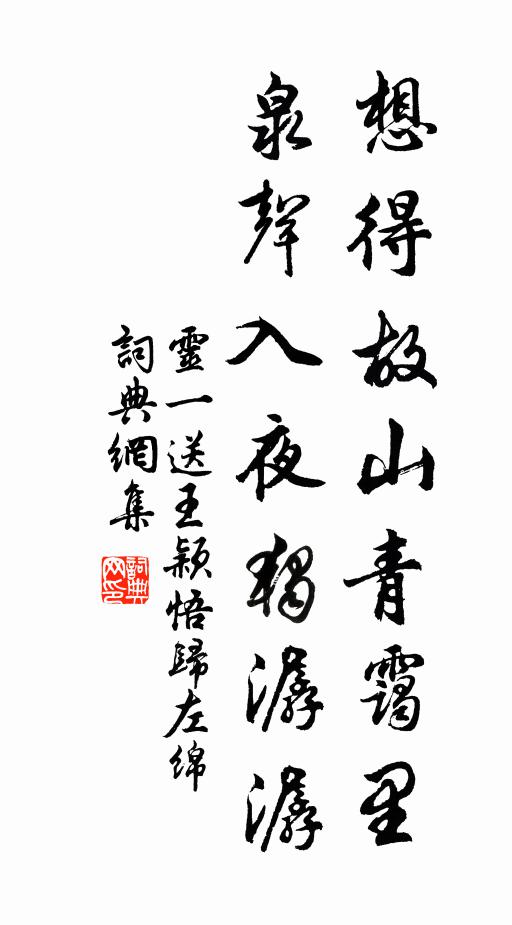 想得故山青靄里
泉聲入夜獨潺潺
靈一送王颖悟歸左绵
詞典網集
詞典网印